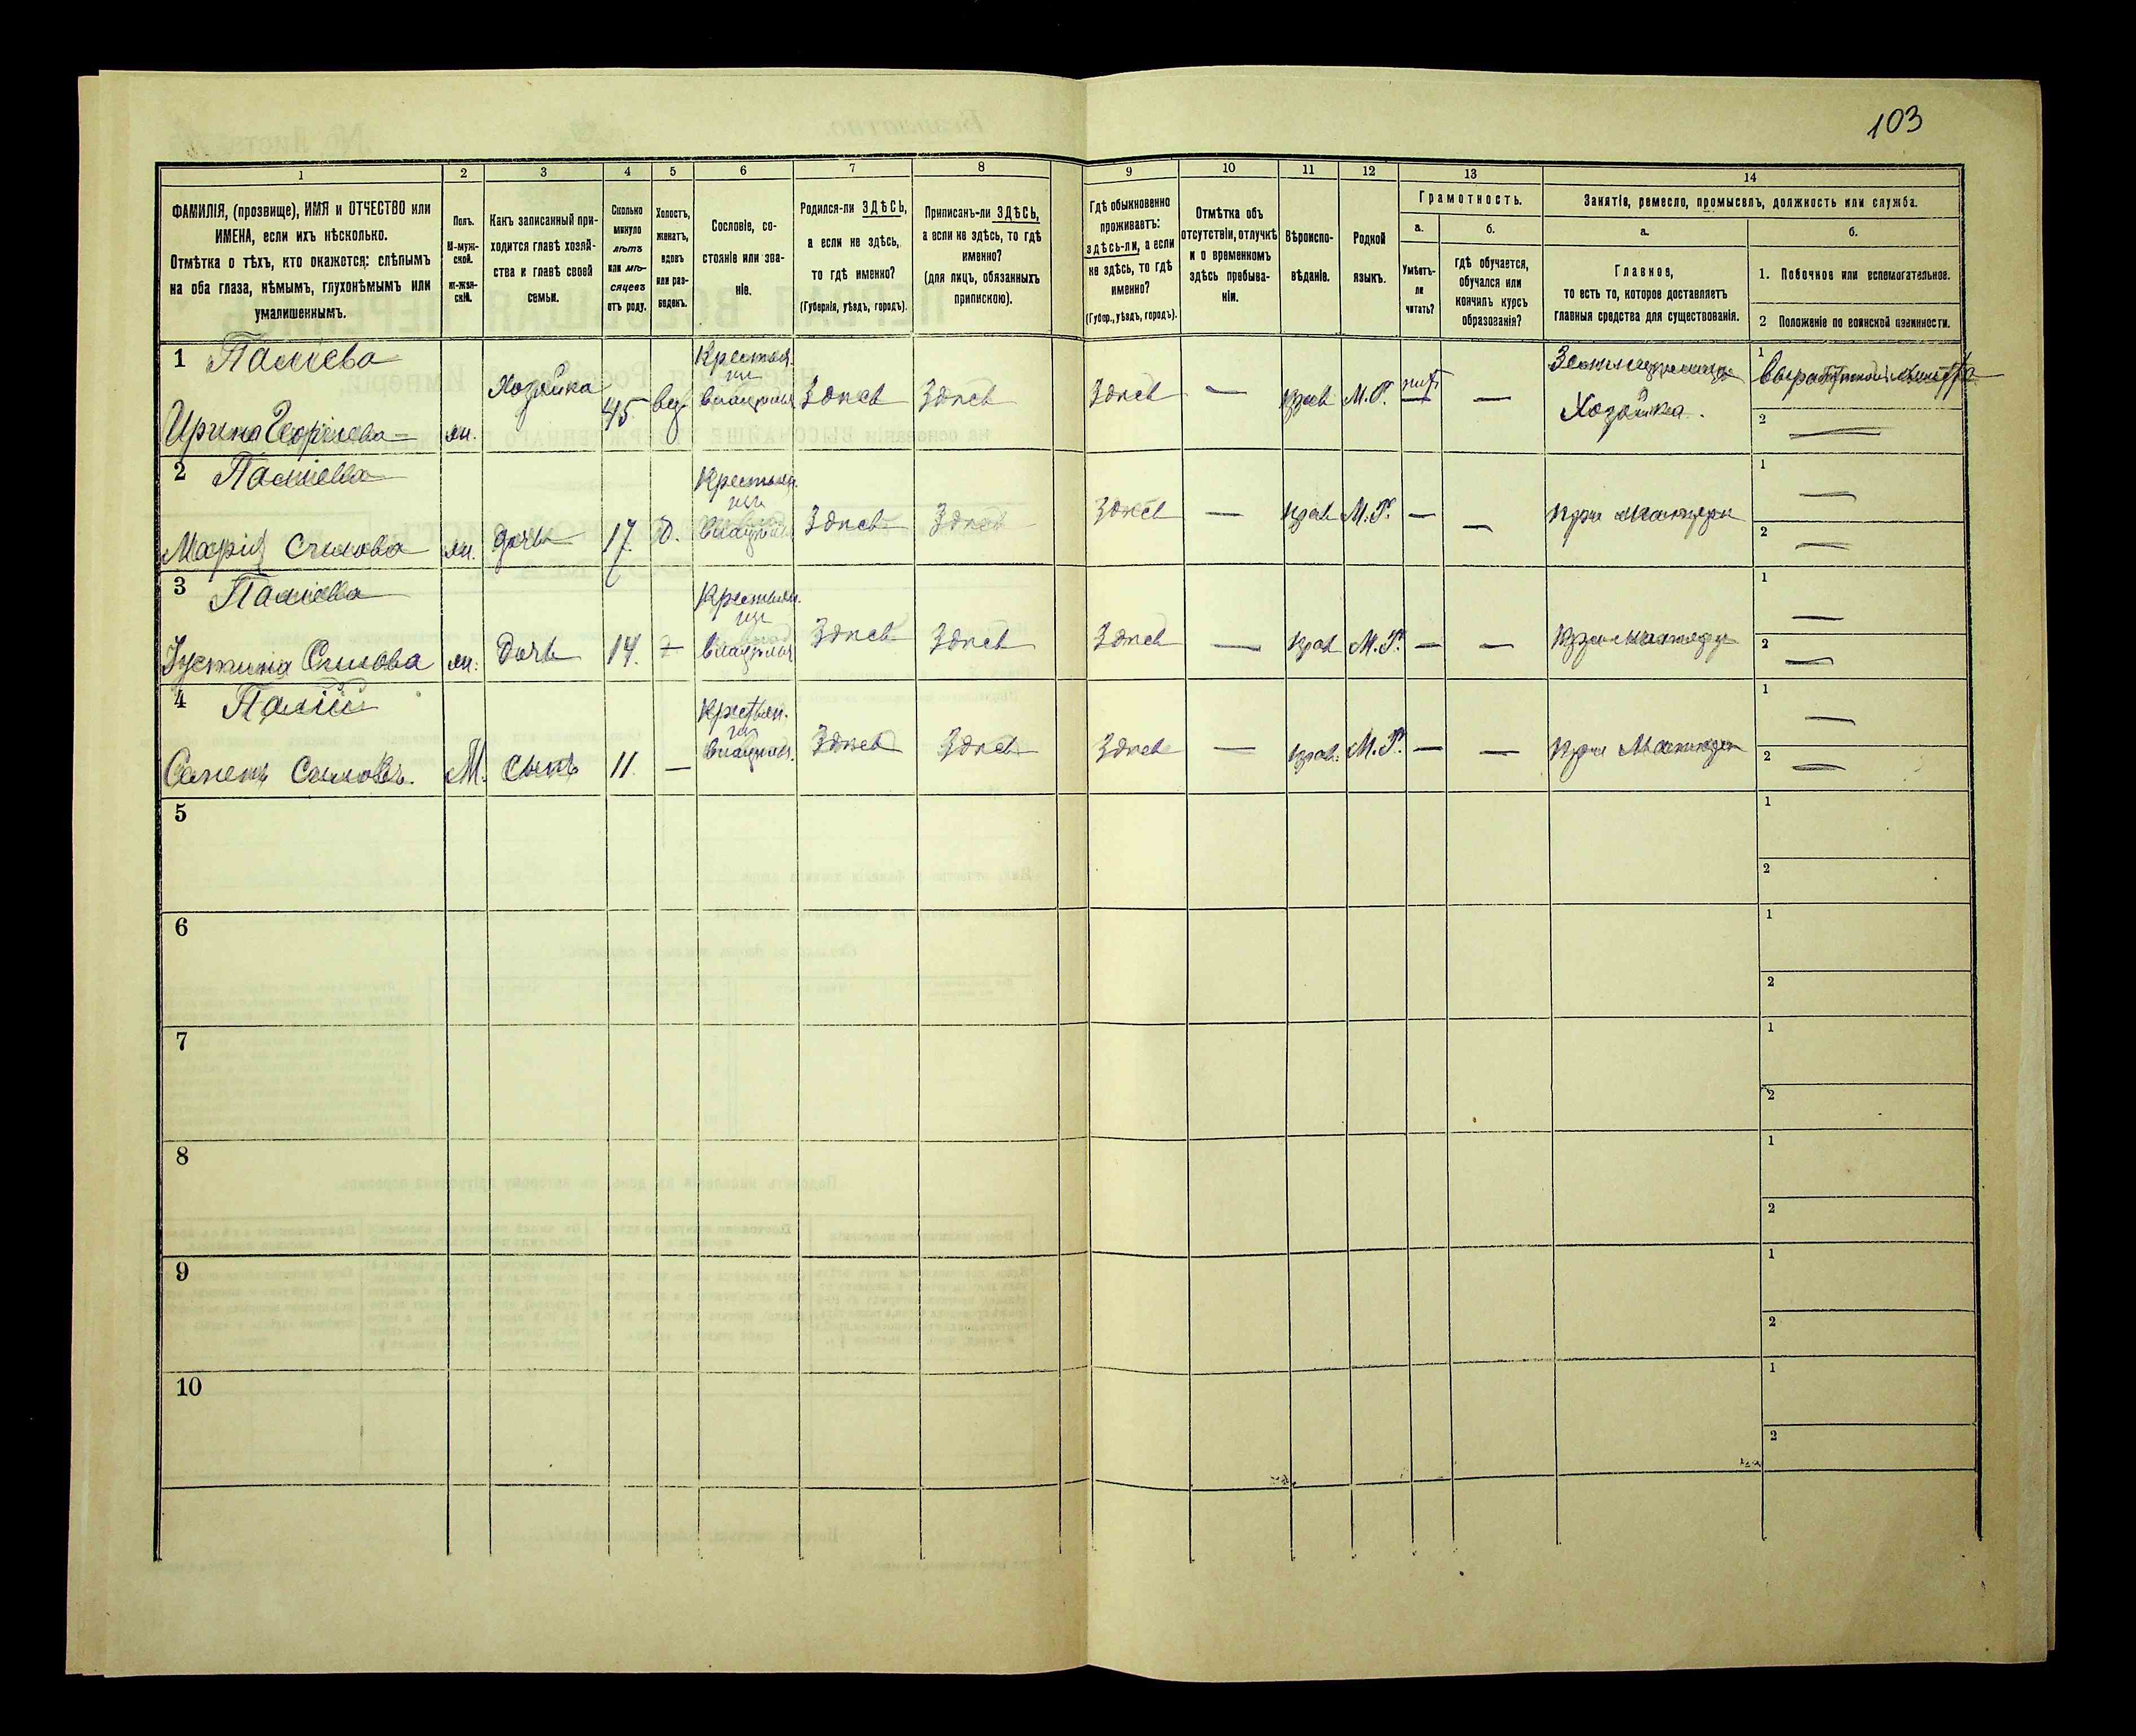 103
1 2 3 4 5 6 7 8 9 10 11 12 13 14
ФАМИЛІЯ, (прозвище), ИМЯ и ОТЧЕСТВО или
ИМЕНА, если ихъ нѣсколько.
Отмѣтка о тѣхъ, кто окажется: слѣпымъ
на оба глаза, нѣмымъ, глухонѣмымъ или
умалишеннымъ.
Полъ.
М-муж-
ской.
ж-жен-
скій.
Какъ записанный при-
ходится главѣ хозяй-
ства и главѣ своей
семьи.
Сколько
минуло
лѣтъ
или мѣ-
сяцевъ
отъ роду.
Холостъ,
женатъ,
вдовъ
или раз-
веденъ.
Сословіе, со-
стояніе или зва-
ніе.
Родился-ли ЗДѢСЬ,
а если не здѣсь,
то гдѣ именно?
(Губернія, уѣздъ, городъ).
Приписанъ-ли ЗДѢСЬ,
а если не здѣсь, то гдѣ
именно?
(для лицъ, обязанныхъ
припискою).
Гдѣ обыкновенно
проживаетъ:
здѣсь-ли, а если
не здѣсь, то гдѣ
именно?
(Губер., уѣздъ, городъ).
Отмѣтка объ
отсутствіи, отлучкѣ
и о временномъ
здѣсь пребыва-
ніи.
Вѣроиспо-
вѣданіе.
Родной
языкъ.
Грамотность.
а.
Умѣетъ-
ли
читать?
б.
Гдѣ обучается,
обучался или
кончилъ курсъ
образованія?
Занятіе, ремесло, промыселъ, должность или служба.
а.
Главное,
то есть то, которое доставляетъ
главныя средства для существованія.
б.
1. Побочное или вспомогательное.
2 Положеніе по воинской повинности.
1 Паліева
Ирина Георгіева ж. Хозяйка 45 вд. Крестьян. Здѣсь Здѣсь Здѣсь — прав М.Р. нѣтъ — Хозяйка. 1
2 —
2 Паліева
Марія Силова ж. дочь 17. д. Крестьян. Здѣсь Здѣсь Здѣсь — прав М.Р. — — при матери 1 —
2 —
3 Паліева
Іустина Силова ж. дочь 14. — Крестьян. Здѣсь Здѣсь Здѣсь — прав М.Р. — — при матери 1 —
2 —
4 Палій
Силовъ. М. сынъ 11. — Крестьян. Здѣсь Здѣсь Здѣсь — прав. М.Р. — — при Матери 1 —
2 —
5 1
2
6 1
2
7 1
2
8 1
2
9 1
2
10 1
2